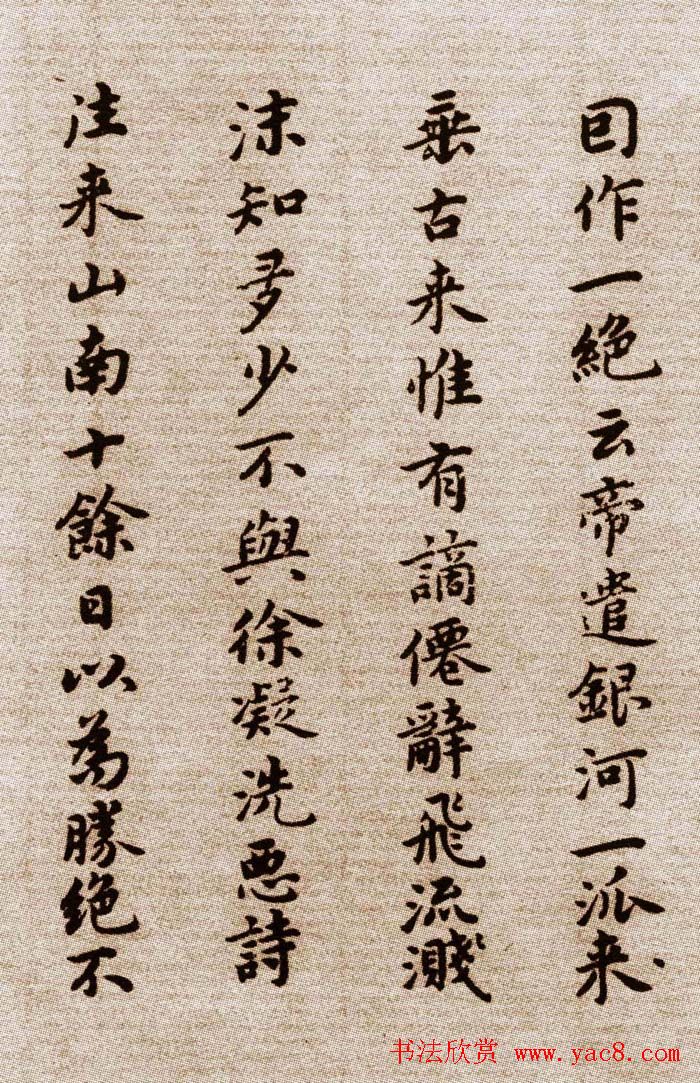 囙作一絶云帝遣銀河一派来
垂古来惟有謫僊辭飛流濺
沫知多少不與徐凝洗悪詩
往来山南十餘日以為勝絶不
书法欣赏 www.yac8.com